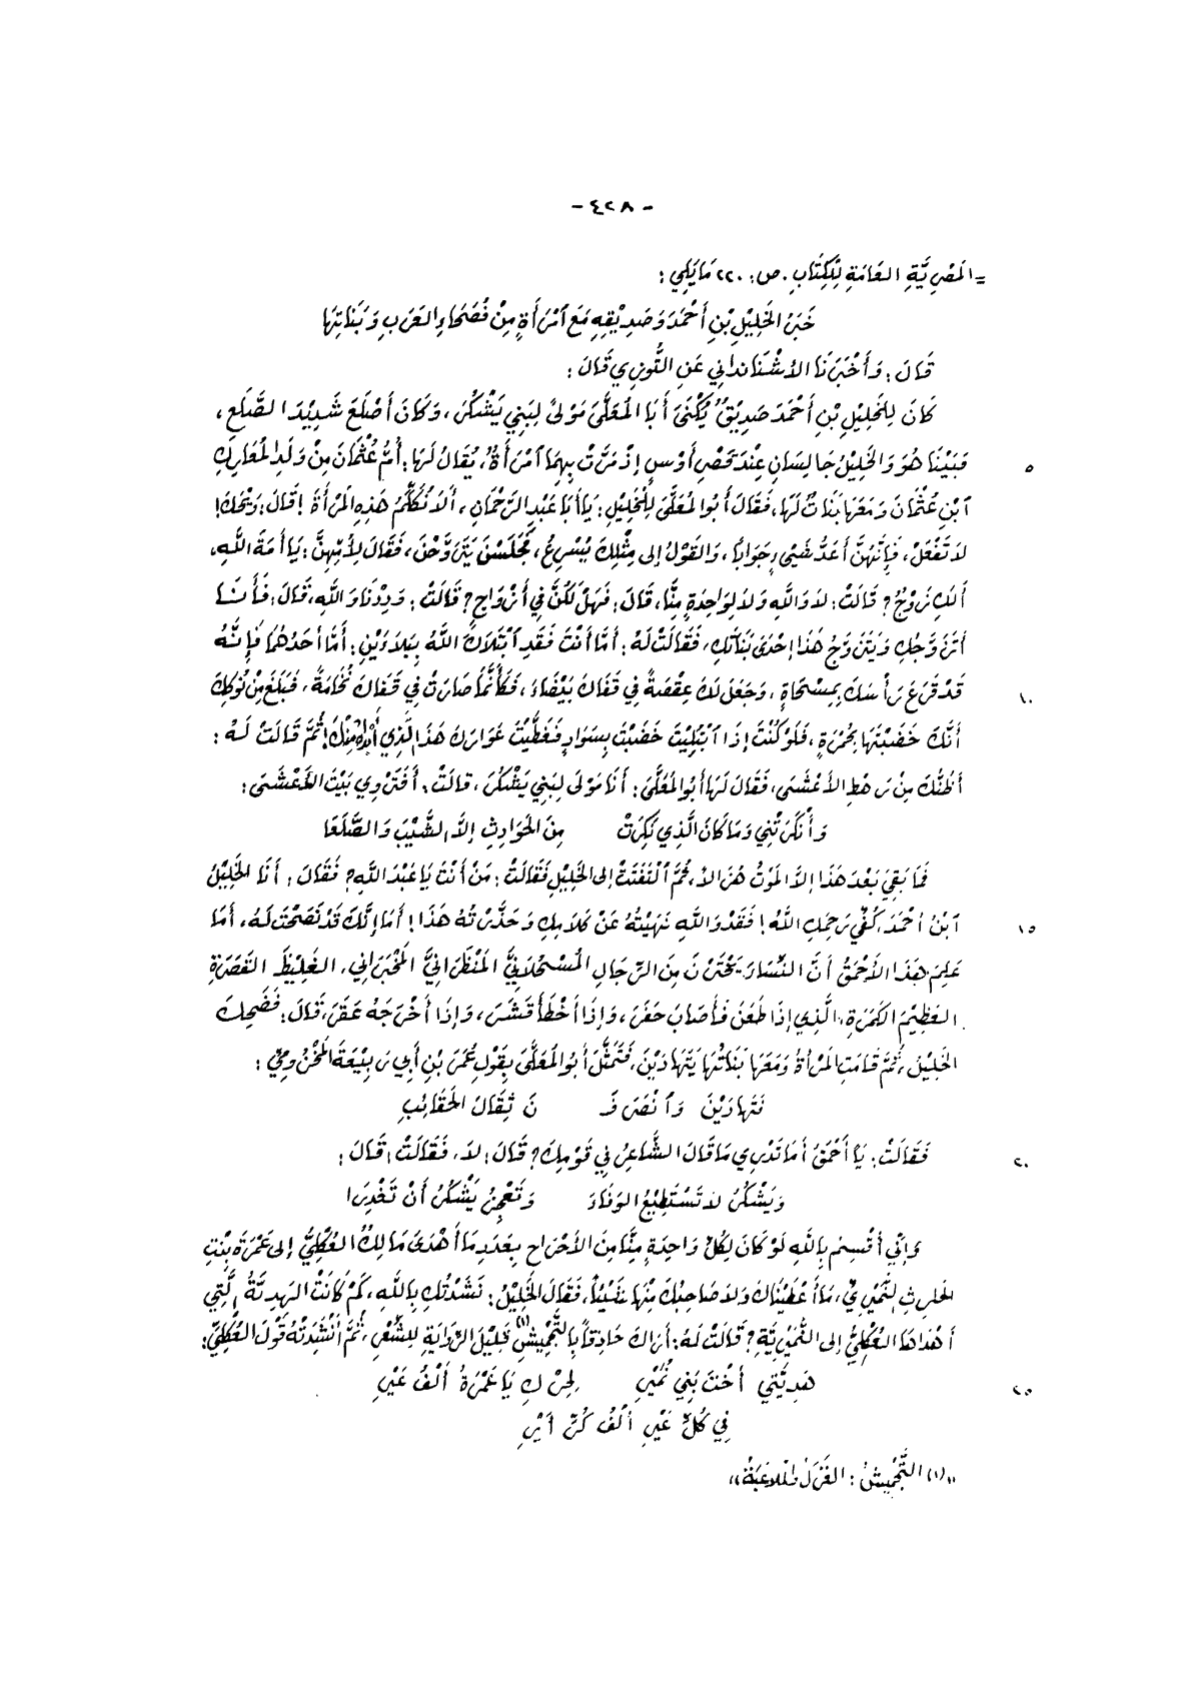 - ٤٢٨ -
= المَصْرِيَّةِ العَامَةِ لِلكِتَابِ. ص: ٢٢٠ مَايَلِي:
خَبَرُ الخَلِيْلِ بْنِ أَحْمَدَ وَصَدِيْقِهِ مَعَ اَمْرَأَةٍ مِنْ فُصَحَاءِ العَرَبِ وَبَنَاتِهَا
قَالَ: وَأَخْبَرَنَا الأُشْنَانْدَانِي عَنِ التَّوَّزِي قَالَ:
كَانَ لِلخَلِيْلِ بْنِ أَحْمَدَ صَدِيْقٌ يُكْنَىَ أَبَا المُعَلَّىَ مَوْلَىً لِبَنِي يَشْكُرَ، وَكَانَ أَصْلَعَ شَدِيْدَ الصَّلَعِ،
٥ فَبَيْنَا هُوَ وَالخَلِيْلُ جَالِسَانِ عِنْدَ قَصْرِ أَوْسٍ إِذْ مَرَّتْ بِهِمَا اَمْرَأَةٌ، يُقَالُ لَهَا: أُمُّ عُثْمَانَ مِنْ وَلَدِ المُعَارِكِ
اَبْنِ عُثْمَانَ وَمَعَهَا بَنَاتٌ لَهَا، فَقَالَ أَبُو المُعَلَّىَ لِلْخَلِيْلِ: يَاأَبَا عَبْدِ الرَّحْمَانِ، أَلاَ نُكَلِّمُ هَذِهِ المَرْأَةَ! قَالَ: وَيْحَكَ!
لاَ تَفْعَلْ، فَإِنَّهُنَّ أَعَدُّ شَيْءٍ جَوَابَاً، وَالقَوْلُ إِلى مِثْلِكَ يُسْرِعُ، فَجَلَسْنَ يَتَرَوَّحْنَ، فَقَالَ لِأُمِّهِنَّ: يَاأَمَةَ اللَّهِ،
أَلَكِ زَوْجٌ؟ قَالَتْ: لاَ وَاللَّهِ وَلاَ لِوَاحِدَةٍ مِنَّا، قَالَ: فَهَلْ لَكُنَّ فِي أَزْوَاجٍ؟ قَالَتْ: وَدِدْنَا وَاللَّهِ، قَالَ: فَأَنَا
أَتَزَوَّجُكِ وَيَتَزَوَّجُ هَذَا إِحْدَىَ بَنَاتِكِ، فَقَالَتْ لَهُ: أَمَّا أَنْتَ فَقَدِ اَبْتَلاَكَ اللَّهُ بِبَلاَءَيْنِ: أَمَّا أَحَدُهُمَا فَإِنَّهُ
١٠ قَدْ قَرَعَ رَأْسَكَ بِمِسْحَاةٍ، وَجَعَلَ لَكَ عِقْصَةً فِي قَفَاكَ بَيْضَاءَ، فَكَأَنَّمَا صَارَتْ فِي قَفَاكَ نُخَامَةٌ، فَبَلَغَ مِنْ نُوكِكَ
أَنَّكَ خَضَبْتَهَا بِحُمْرَةٍ، فَلَوْ كُنْتَ إِذَا اَبْتُلِيْتَ خَضَبْتَ بِسَوَادٍ فَغَطَّيْتَ عَوَارَكَ هَذَا الَّذِي أَبْدَاهُ مِنْكَ! ثُمَّ قَالَتْ لَهُ:
أَظُنُّكَ مِنْ رَهْطِ الأَعْشَىَ، فَقَالَ لَهَا أَبُو المُعَلَّىَ: أَنَا مَوْلَى لِبَنِي يَشْكُرَ، قَالَتْ: أَفَتَرْوِي بَيْتَ الأَعْشَىَ:
وَأَنْكَرَتْنِي وَمَا كَانَ الَّذِي نَكِرَتْ مِنَ الحَوَادِثِ إِلاَّ الشَّيْبَ وَالصَّلَعَا
فَمَا بَقِيَ بَعْدَ هَذَا إِلاَّ المَوْتُ هُزَالاً، ثُمَّ اَلْتَفَتَتْ إِلى الخَلِيْلِ فَقَالَتْ: مَنْ أَنْتَ يَا عَبْدَ اللَّهِ؟ فَقَالَ: أَنَا الخَلِيْلُ
١٥ اَبْنُ أَحْمَدَ، كُفِّي رَحِمَكِ اللَّهُ! فَقَدْ وَاللَّهِ نَهَيْتُهُ عَنْ كَلاَمِكِ وَحَذَّرْتُهُ هَذَا! أَمَا إِنَّكَ قَدْ نَصَحْتَ لَهُ، أَمَا
عَلِمَ هَذَا الأَحْمَقُ أَنَّ النِّسَاءَ يَخْتَرْنَ مِنَ الرِّجَالِ المُسْحُلاَنِيَّ المَنْظَرَانِيَّ المَخْبَرَانِي، الغَلِيْظَ القَصَرَةِ
العَظِيْمَ الكَمَرَةِ، الَّذِي إِذَا طَعَنَ فَأَصَابَ حَفَرَ، وَإِذَا أَخْطَأَ قَشَرَ، وَإِذَا أَخْرَجَهُ عَقَرَ، قَالَ: فَضَحِكَ
الخَلِيْلُ، ثُمَّ قَامَتِ المَرْأَةُ وَمَعَهَا بَنَاتُهَا يَتَهَادَيْنَ، فَتَمَثَّلَ أَبُو المُعَلَّىَ بِقَوْلِ عُمَرَ بْنِ أَبِي رَبِيْعَةَ المَخْزُومِيِّ:
فَتَهَادَيْنَ وَاَنْصَرَفْـ ـنَ ثِقَالَ الحَقَائِبِ
٢٠ فَقَالَتْ: يَاأَحْمَقُ أَمَا تَدْرِي مَا قَالَ الشَّاعِرُ فِي قَوْمِكَ؟ قَالَ: لاَ، فَقَالَتْ: قَالَ:
وَيَشْكُرُ لاَ تَسْتَطِيْعُ الوَفَاءَ وَتَعْجِزُ يَشْكُرُ أَنْ تَغْدِرَا
وَإِنِّي أُقْسِمُ بِاللَّهِ لَوْ كَانَ لِكُلِّ وَاحِدَةٍ مِنَّا مِنَ الأَحْرَاحِ بِعَدَدِ مَا أَهْدَىَ مَالِكٌ العُكْلِيُّ إِلى عَمْرَةَ بِنْتِ
الحَارِثِ النُّمَيْرِيِّ، مَا أَعْطَيْنَاكَ وَلاَ صَاحِبَكَ مِنْهَا شَيْئاً، فَقَالَ الخَلِيْلُ: نَشَدْتُكِ بِاللَّهِ، كَمْ كَانَتْ الهَدِيَّةُ الَّتِي
أَهْدَاهَا العُكْلِيُّ إِلى النُّمَيْرِيَّةِ؟ قَالَتْ لَهُ: أَرَاكَ حَاذِقاً بِالتَّجْمِيْشِ(١) قَلِيْلَ الرِّوَايَةِ لِلشِّعْرِ، ثُمَّ أَنْشَدَتْهُ قَوْلَ العُكْلِيِّ:
٢٥ هَدِيَّتِي أُخْتَ بَنِي نُمَيْرِ لِحِرِكِ يَا عَمْرَةُ أَلْفُ عَيْرِ
فِي كُلِّ عَيْرٍ أَلْفُ كُرِّ أَيْرِ
"(١) التَّجْمِيْشُ: الغَزَلُ وَالمُلاَعَبَةُ"